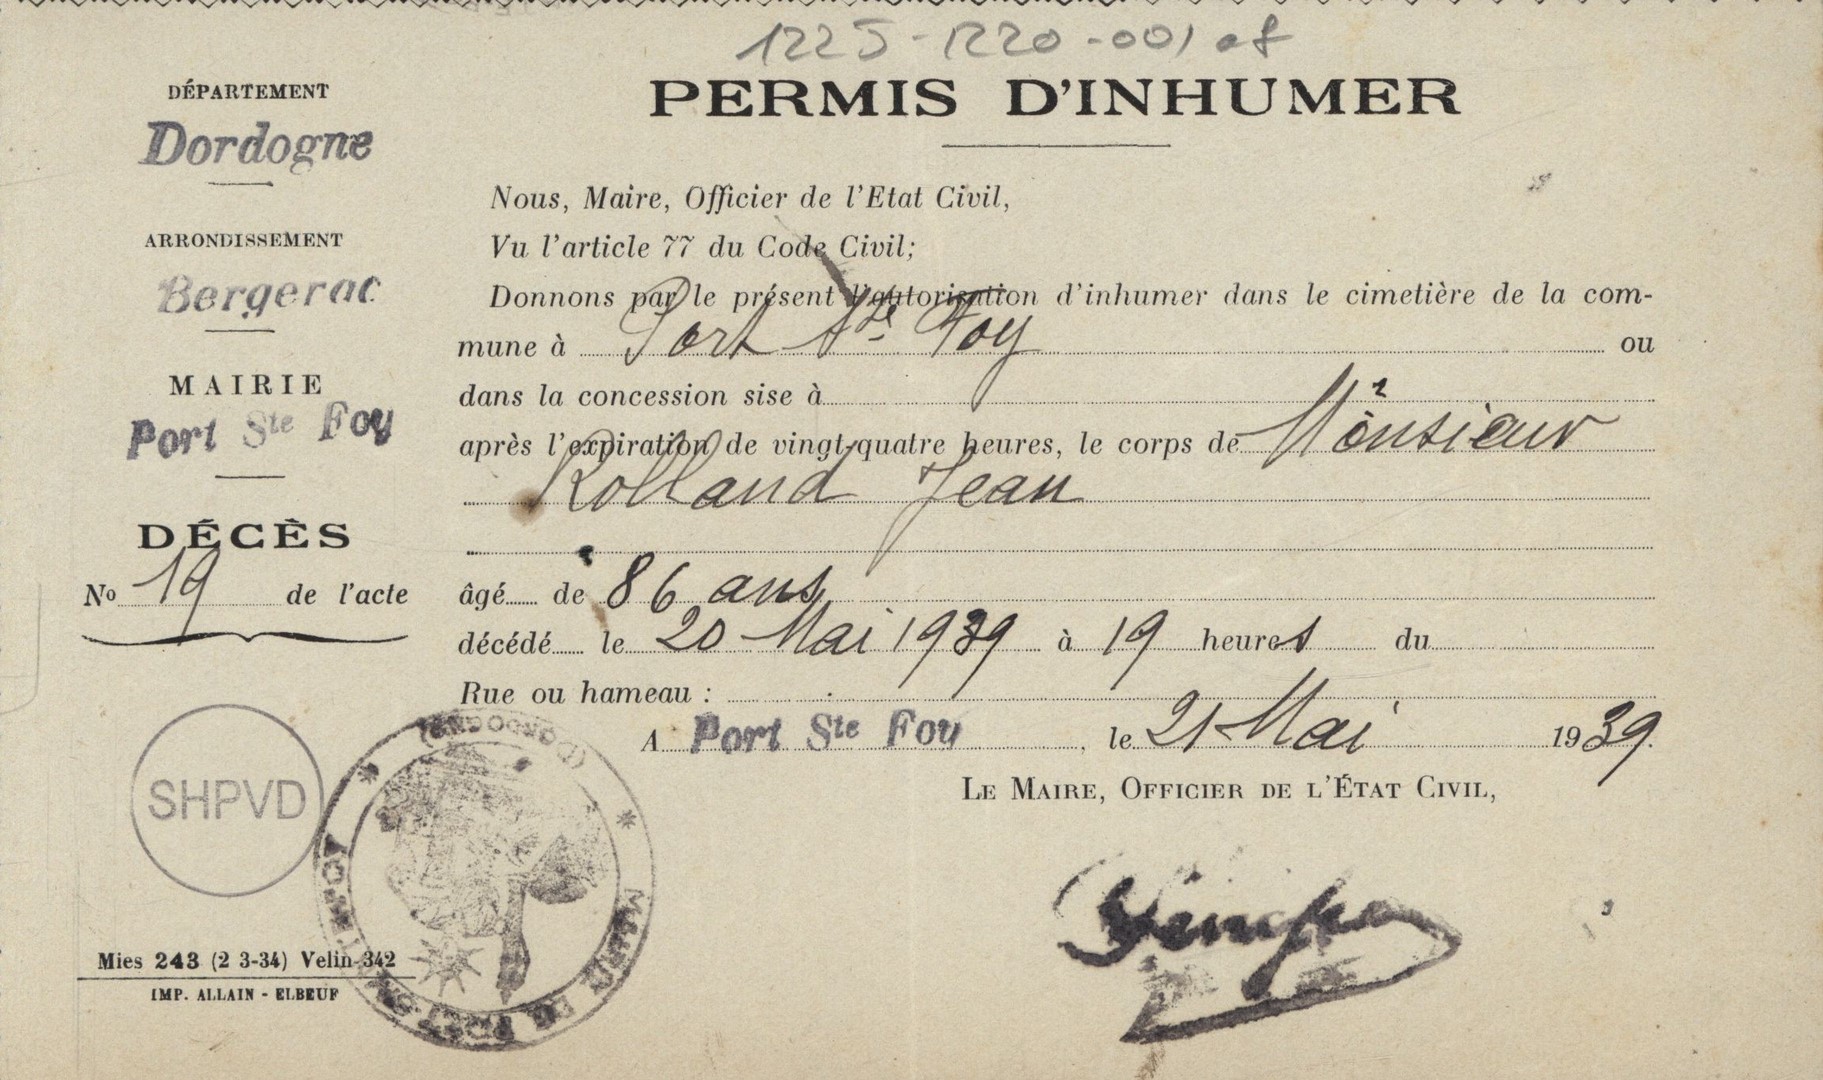 1225-1220-001 af
PERMIS D'INHUMER
DÉPARTEMENT
Dordogne
ARRONDISSEMENT
Bergerac
MAIRIE
Port Ste Foy
DÉCÈS
No 19 de l'acte
Nous, Maire, Officier de l'Etat Civil,
Vu l'article 77 du Code Civil;
Donnons par le présent l'autorisation d'inhumer dans le cimetière de la com-
mune à Port Ste Foy ou
dans la concession sise à
après l'expiration de vingt-quatre heures, le corps de Monsieur
Rolland Jean
âgé de 86 ans
décédé le 20 Mai 1939 à 19 heures du
Rue ou hameau :
A Port Ste Foy, le 21 Mai 1939.
LE MAIRE, OFFICIER DE L'ÉTAT CIVIL,
SHPVD
MAIRIE DE PORT-STE-FOY
(DORDOGNE)
Mies 243 (2 3-34) Velin 342
IMP. ALLAIN - ELBEUF